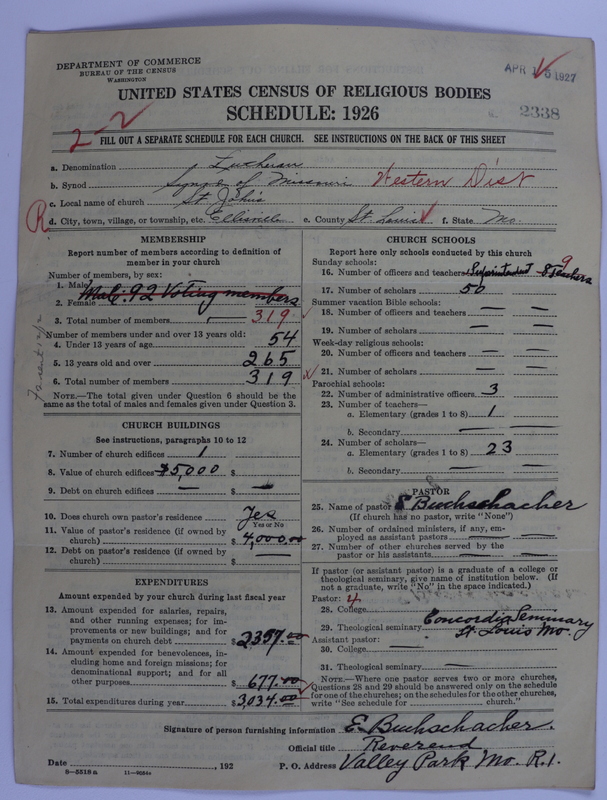 DEPARTMENT OF COMMERCE
BUREAU OF THE CENSUS
WASHINGTON
APR 1 5 1927
UNITED STATES CENSUS OF RELIGIOUS BODIES
SCHEDULE: 1926
2338
2-2
FILL OUT A SEPARATE SCHEDULE FOR EACH CHURCH. SEE INSTRUCTIONS ON THE BACK OF THIS SHEET
a. Denomination Lutheran
b. Synod Synod of Missouri Western Dist
c. Local name of church St. John's
R d. City, town, village, or township, etc. Ellisville e. County St. Louis f. State Mo.
MEMBERSHIP
Report number of members according to definition of
member in your church
Number of members, by sex:
1. Male
2. Female Male. 92 Voting members
3. Total number of members 319
Number of members under and over 13 years old:
4. Under 13 years of age 54
5. 13 years old and over 265
6. Total number of members 319
NOTE.—The total given under Question 6 should be the
same as the total of males and females given under Question 3.
CHURCH BUILDINGS
See instructions, paragraphs 10 to 12
7. Number of church edifices 1
8. Value of church edifices $ 15,000 $
9. Debt on church edifices — $ —
10. Does church own pastor's residence Yes
Yes or No
11. Value of pastor's residence (if owned by
church) $ 4,000.00
12. Debt on pastor's residence (if owned by
church) $ —
EXPENDITURES
Amount expended by your church during last fiscal year
13. Amount expended for salaries, repairs,
and other running expenses; for im-
provements or new buildings; and for
payments on church debt $ 2357.00
14. Amount expended for benevolences, in-
cluding home and foreign missions; for
denominational support; and for all
other purposes $ 677.00
15. Total expenditures during year $ 3,034.00
CHURCH SCHOOLS
Report here only schools conducted by this church
Sunday schools:
16. Number of officers and teachers Suprintendent 8 teachers 9
17. Number of scholars 50
Summer vacation Bible schools:
18. Number of officers and teachers — —
19. Number of scholars — —
Week-day religious schools:
20. Number of officers and teachers — —
21. Number of scholars — —
Parochial schools:
22. Number of administrative officers 3
23. Number of teachers—
a. Elementary (grades 1 to 8) 1
b. Secondary — —
24. Number of scholars—
a. Elementary (grades 1 to 8) 23
b. Secondary — —
PASTOR
25. Name of pastor E Buchschacher
(If church has no pastor, write "None")
26. Number of ordained ministers, if any, em-
ployed as assistant pastors — —
27. Number of other churches served by the
pastor or his assistants — —
If pastor (or assistant pastor) is a graduate of a college or
theological seminary, give name of institution below. (If
not a graduate, write "No" in the space indicated.)
Pastor: 4
28. College
29. Theological seminary Concordia Seminary
St. Louis Mo.
Assistant pastor:
30. College —
31. Theological seminary —
NOTE.—Where one pastor serves two or more churches,
Questions 28 and 29 should be answered only on the schedule
for one of the churches; on the schedules for the other churches,
write "See schedule for church."
Signature of person furnishing information E. Buchschacher.
Official title Reverend
Date , 192 P. O. Address Valley Park Mo. R.1.
8—5518a 11—9554a